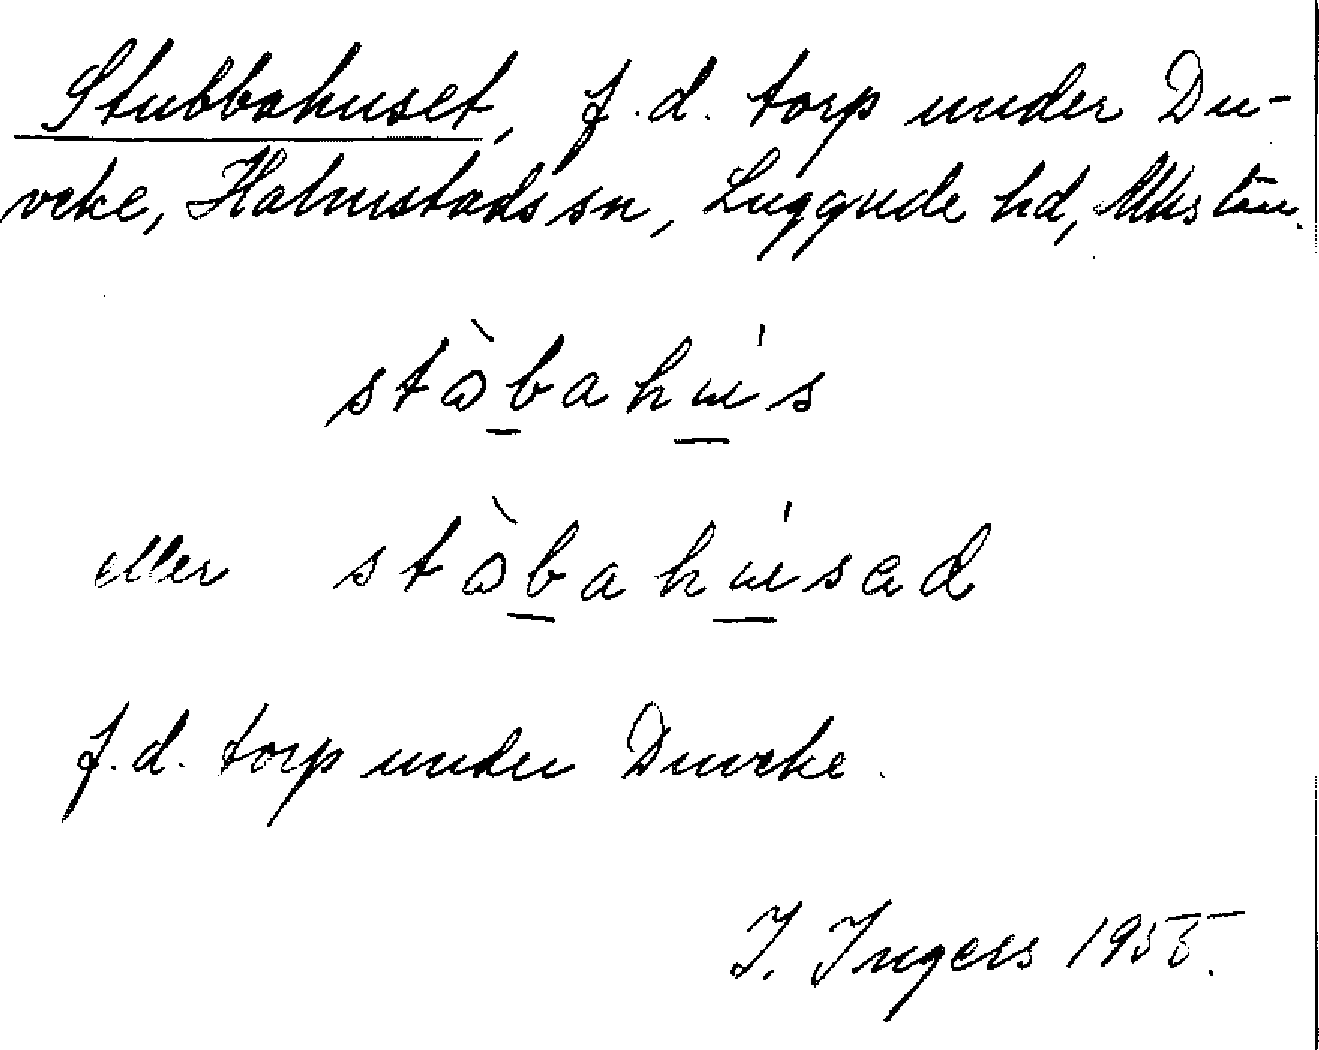 Stubbahuset, f.d. torp under Du-
vcke, Halmstads sn, Luggude hd, Mhs län.
stò̱bahu̱ís
eller stò̱bahu̱ísad
f.d. torp under Duvcke.
I. Ingers 1955.